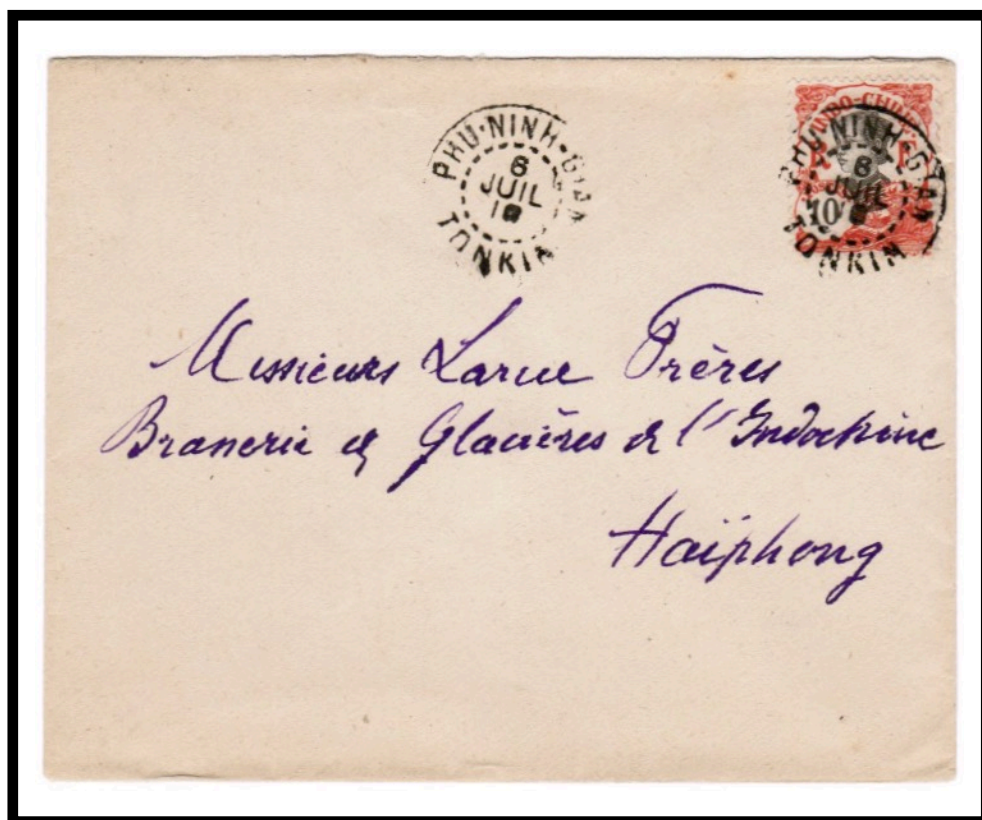 PHU-NINH-GIAN
6
JUIL
TONKIN
INDO-CHINE
R F
10
PHU-NINH-GIAN
6
JUIL
TONKIN
Messieurs Larue Frères
Brasserie et Glacières de l'Indochine
Haïphong